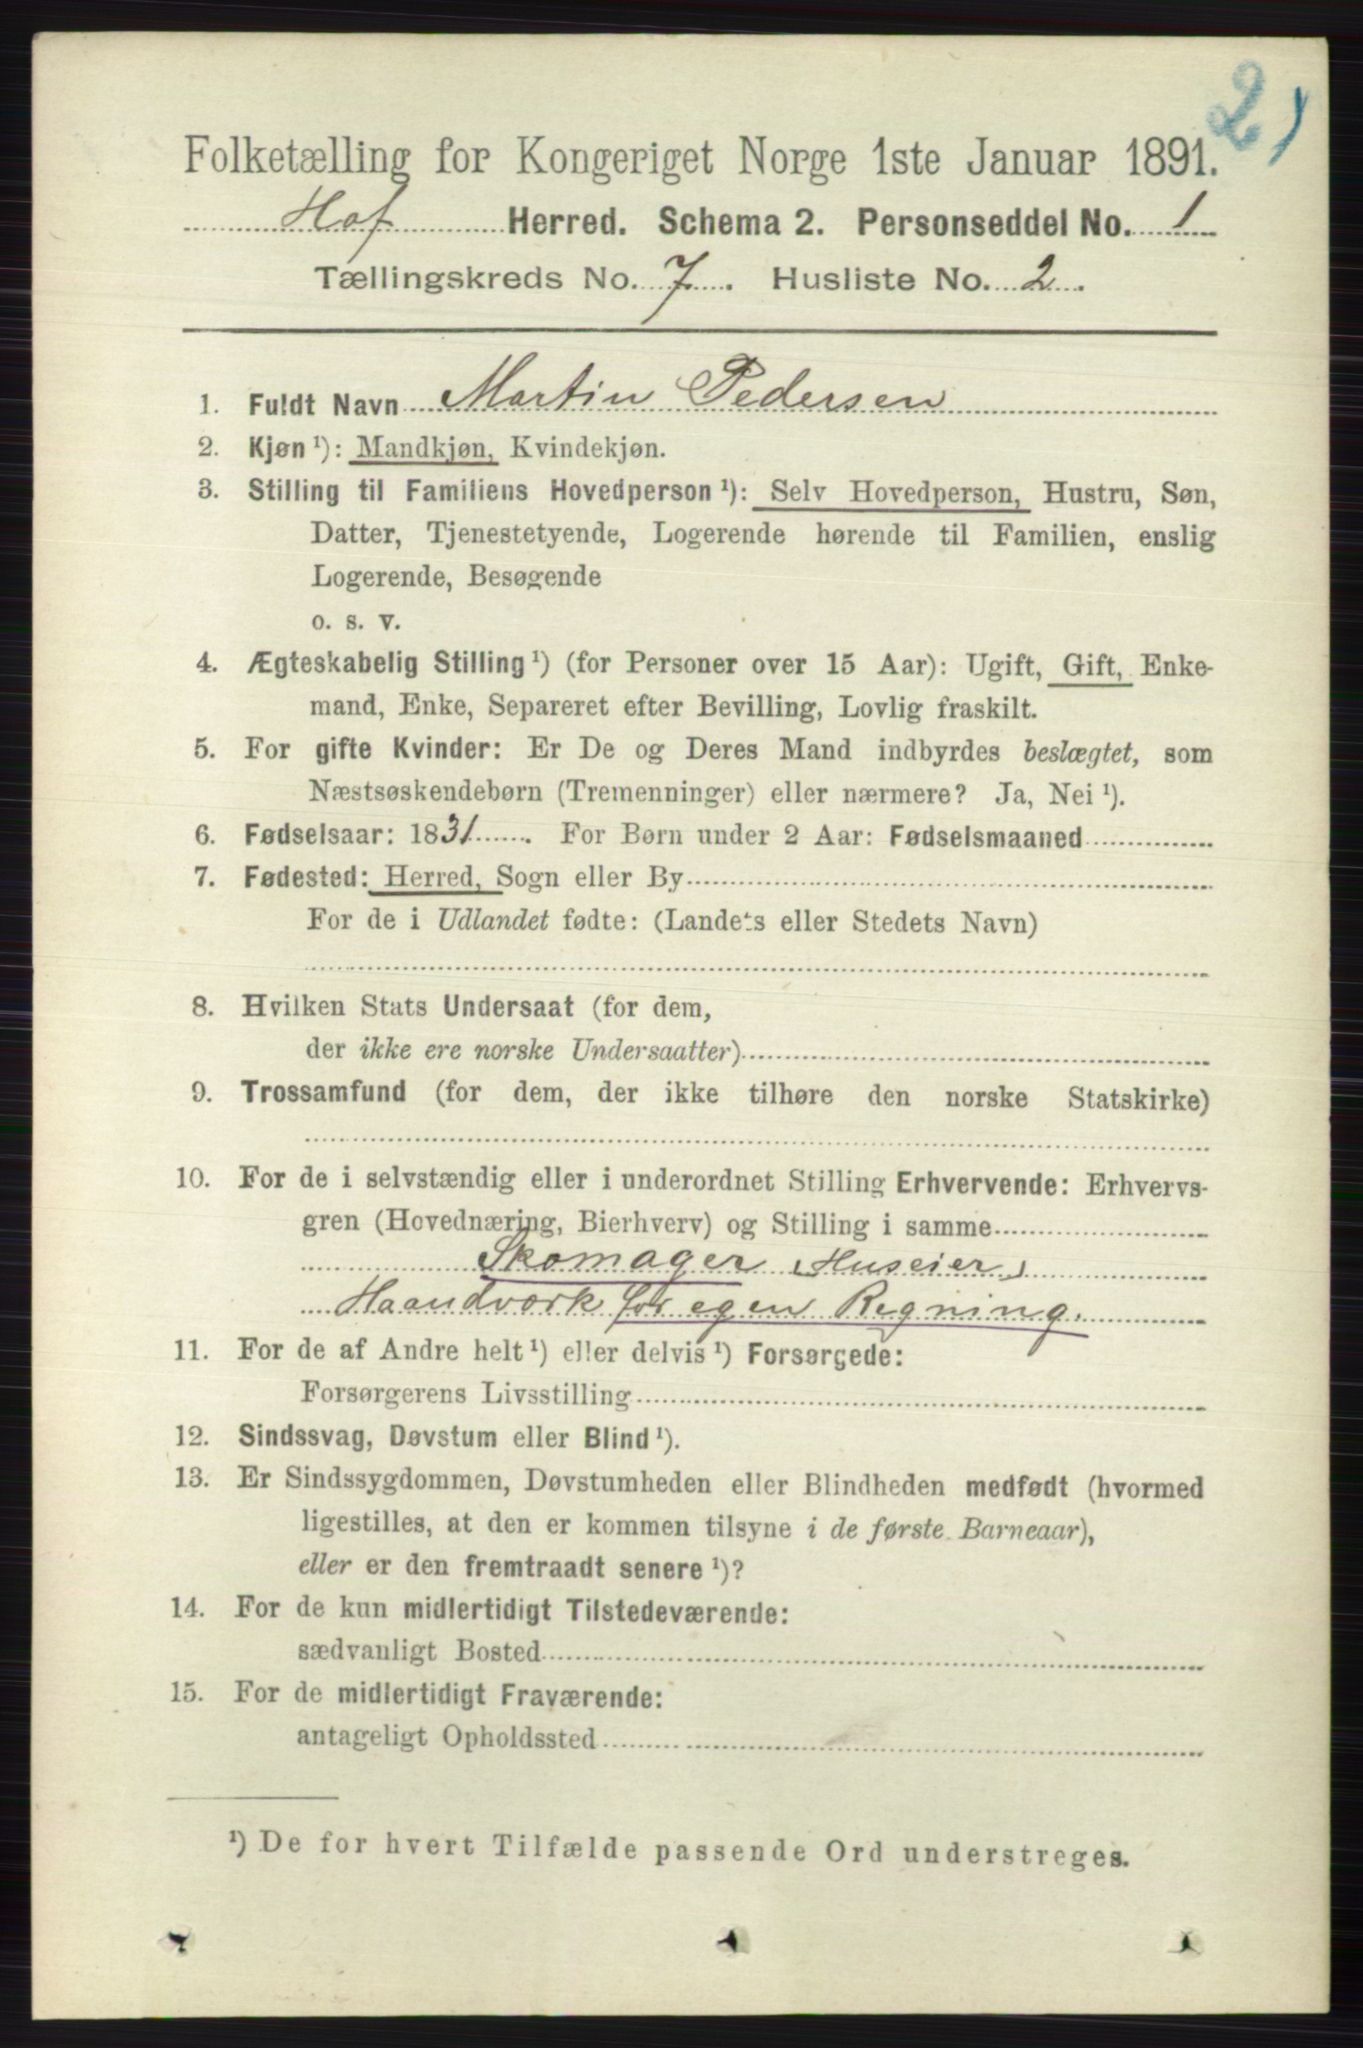 2)
Folketælling for Kongeriget Norge 1ste Januar 1891.
Hof Herred. Schema 2. Personseddel No. 1
Tællingskreds No. 7. Husliste No. 2.
1. Fuldt Navn Martin Pedersen
2. Kjøn¹): Mandkjøn, Kvindekjøn.
3. Stilling til Familiens Hovedperson¹): Selv Hovedperson, Hustru, Søn,
Datter, Tjenestetyende, Logerende hørende til Familien, enslig
Logerende, Besøgende
o. s. v.
4. Ægteskabelig Stilling¹) (for Personer over 15 Aar): Ugift, Gift, Enke-
mand, Enke, Separeret efter Bevilling, Lovlig fraskilt.
5. For gifte Kvinder: Er De og Deres Mand indbyrdes beslægtet, som
Næstsøskendebørn (Tremenninger) eller nærmere? Ja, Nei¹).
6. Fødselsaar: 1831. For Børn under 2 Aar: Fødselsmaaned
7. Fødested: Herred, Sogn eller By
For de i Udlandet fødte: (Landets eller Stedets Navn)
8. Hvilken Stats Undersaat (for dem,
der ikke ere norske Undersaatter)
9. Trossamfund (for dem, der ikke tilhøre den norske Statskirke)
10. For de i selvstændig eller i underordnet Stilling Erhvervende: Erhvervs-
gren (Hovednæring, Bierhverv) og Stilling i samme
Skomager (Huseier)
Haandværk for egen Regning.
11. For de af Andre helt¹) eller delvis¹) Forsørgede:
Forsørgerens Livsstilling
12. Sindssvag, Døvstum eller Blind¹).
13. Er Sindssygdommen, Døvstumheden eller Blindheden medfødt (hvormed
ligestilles, at den er kommen tilsyne i de første Barneaar),
eller er den fremtraadt senere¹)?
14. For de kun midlertidigt Tilstedeværende:
sædvanligt Bosted
15. For de midlertidigt Fraværende:
antageligt Opholdssted
¹) De for hvert Tilfælde passende Ord understreges.